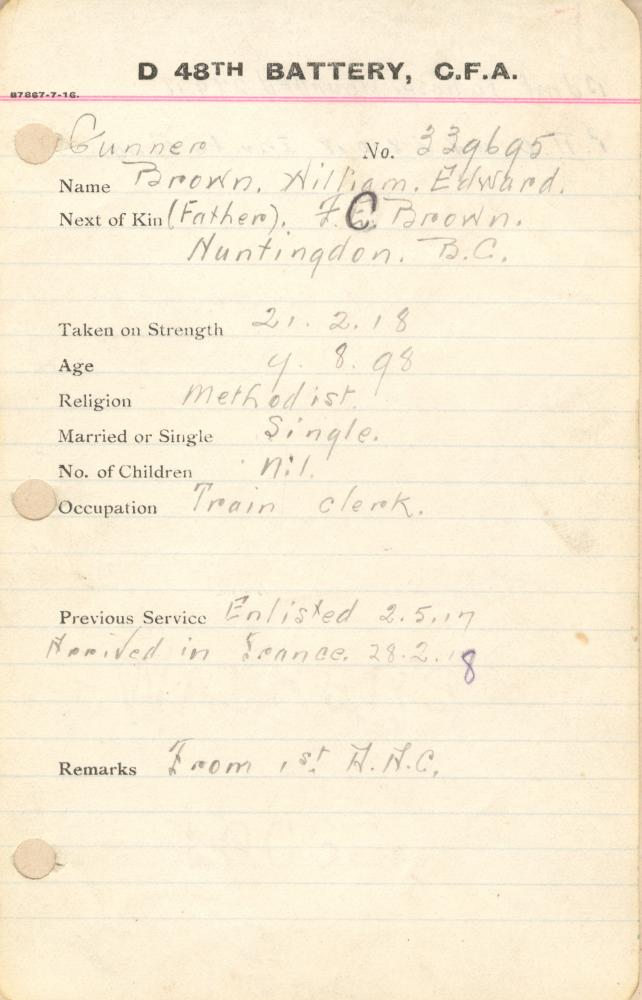 D 48TH BATTERY, C.F.A.
B7867-7-16.
Gunner No. 339695
Name Brown. William. Edward.
Next of Kin (Father). F. C. Brown.
Huntingdon. B.C.
Taken on Strength 21. 2. 18
Age 4. 8. 98
Religion Methodist.
Married or Single Single.
No. of Children Nil.
Occupation Train clerk.
Previous Service Enlisted 2.5.17
Arrived in France. 28.2.18
Remarks From 1st